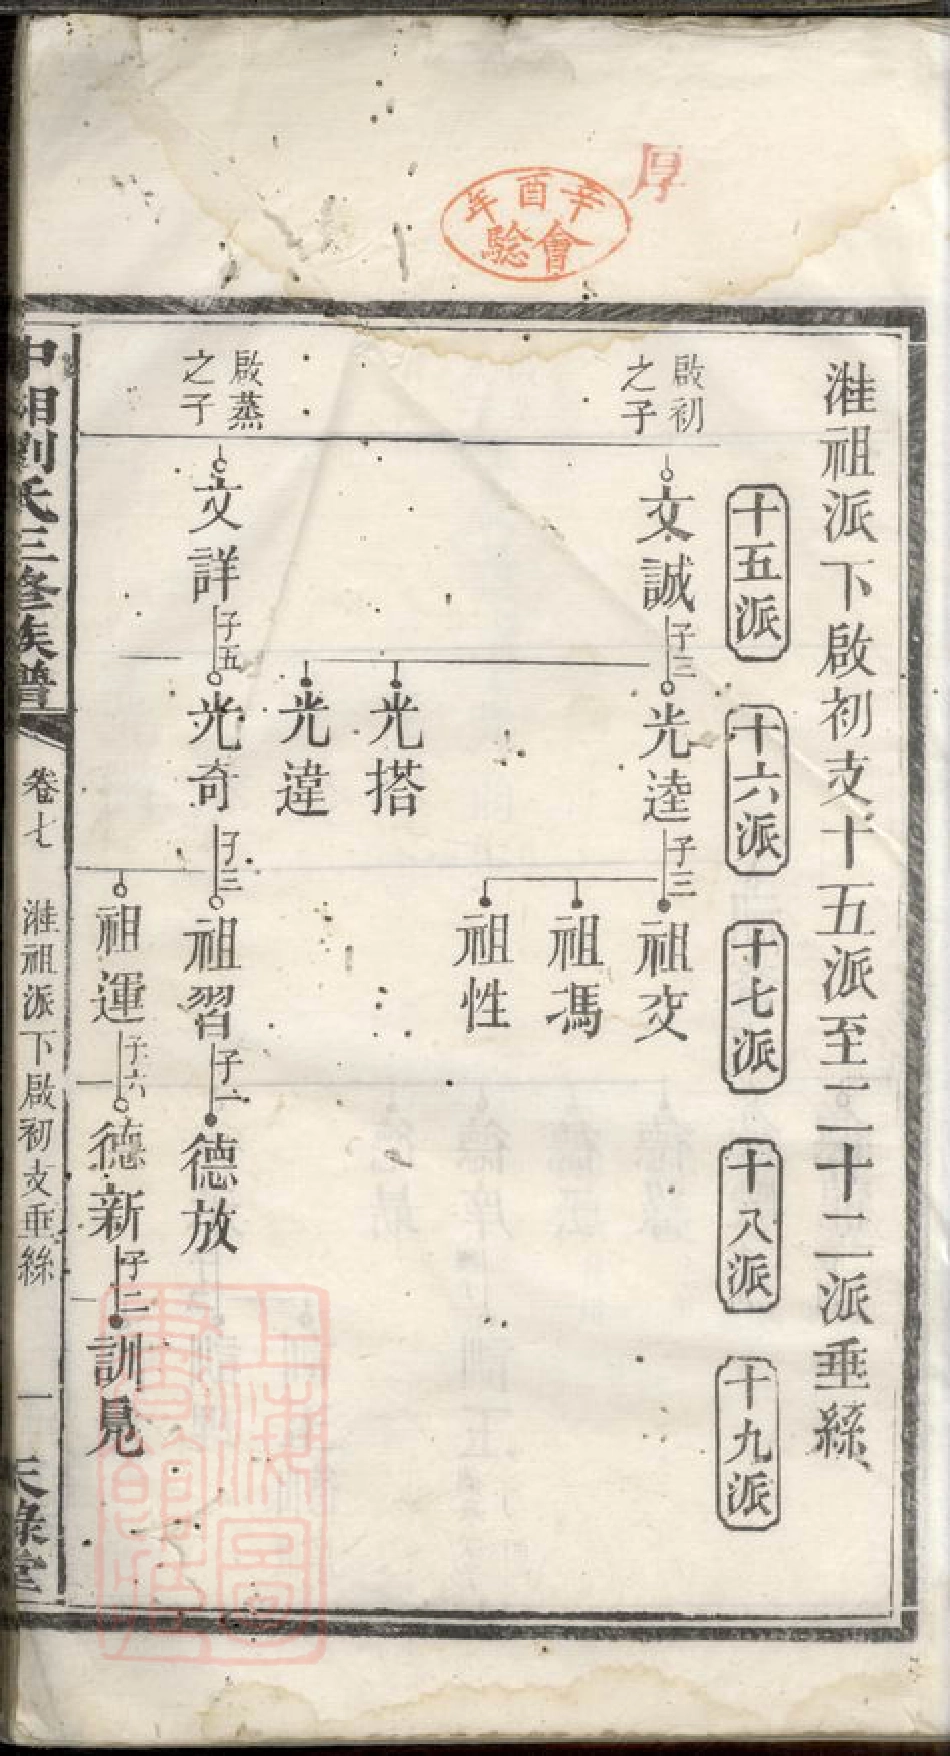 厚
辛酉年
會驗
漼祖派下啟初支十五派至二十二派垂絲
十五派
十六派
十七派
十八派
十九派
啟初
之子
文誠
子三
光逵
子三
祖交
祖馮
祖性
光搭
光違
啟蒸
之子
文詳
子五
光奇
子三
祖習
子一
德放
祖運
子六
德新
子二
訓見
中湘劉氏三修族譜
卷七
漼祖派下啟初支垂絲
一
天祿堂
上海圖
書館藏